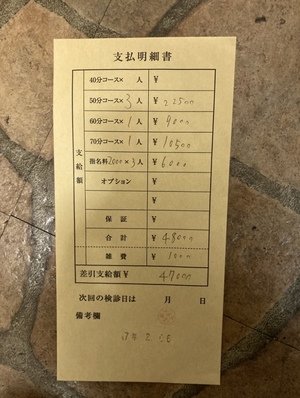 支払明細書
支給額
40分コース× 人 ¥
50分コース× 3 人 ¥ 22500
60分コース× 1 人 ¥ 9000
70分コース× 1 人 ¥ 10500
指名料2000×3人 ¥ 6000
オプション ¥
¥
保証 ¥
合計 ¥ 48000
雑費 ¥ 1000
差引支給額 ¥ 47000
次回の検診日は 月 日
備考欄